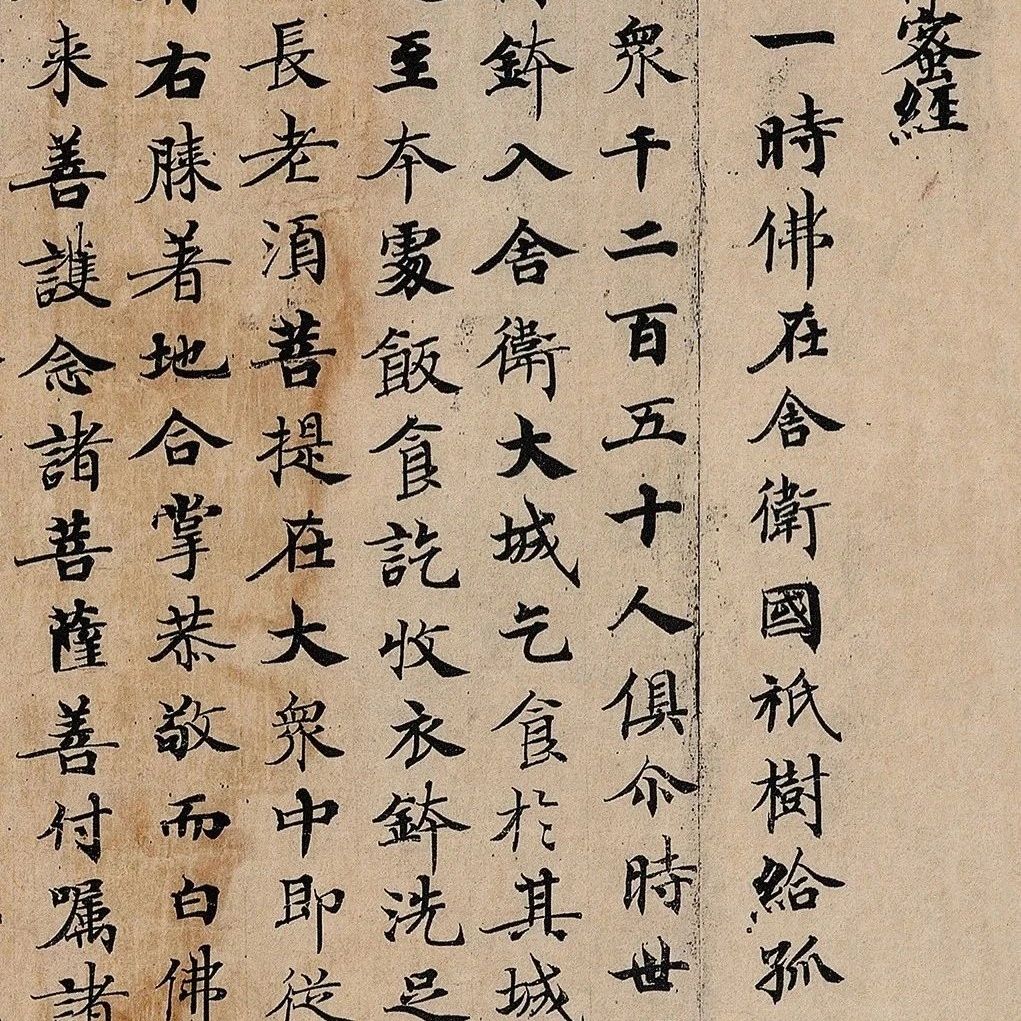 蜜經
一時佛在舍衛國祇樹給孤
眾千二百五十人俱尒時世
鉢入舍衛大城乞食於其城
至本處飯食訖收衣鉢洗足
長老須菩提在大眾中即從
右膝著地合掌恭敬而白佛
来善護念諸菩薩善付囑諸